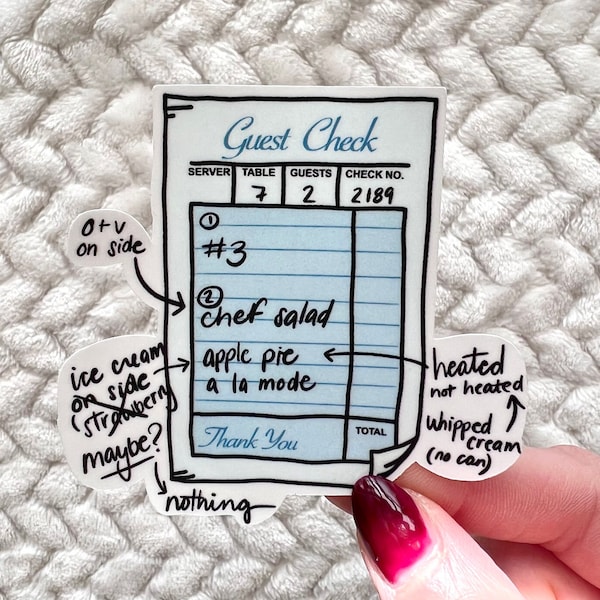 Guest Check
SERVER TABLE GUESTS CHECK NO.
7 2 2189
1
#3
2
chef salad
apple pie
a la mode
Thank You
TOTAL
o+v
on side
ice cream
on side
(strawberry)
maybe?
nothing
heated
not heated
whipped
cream
(no can)